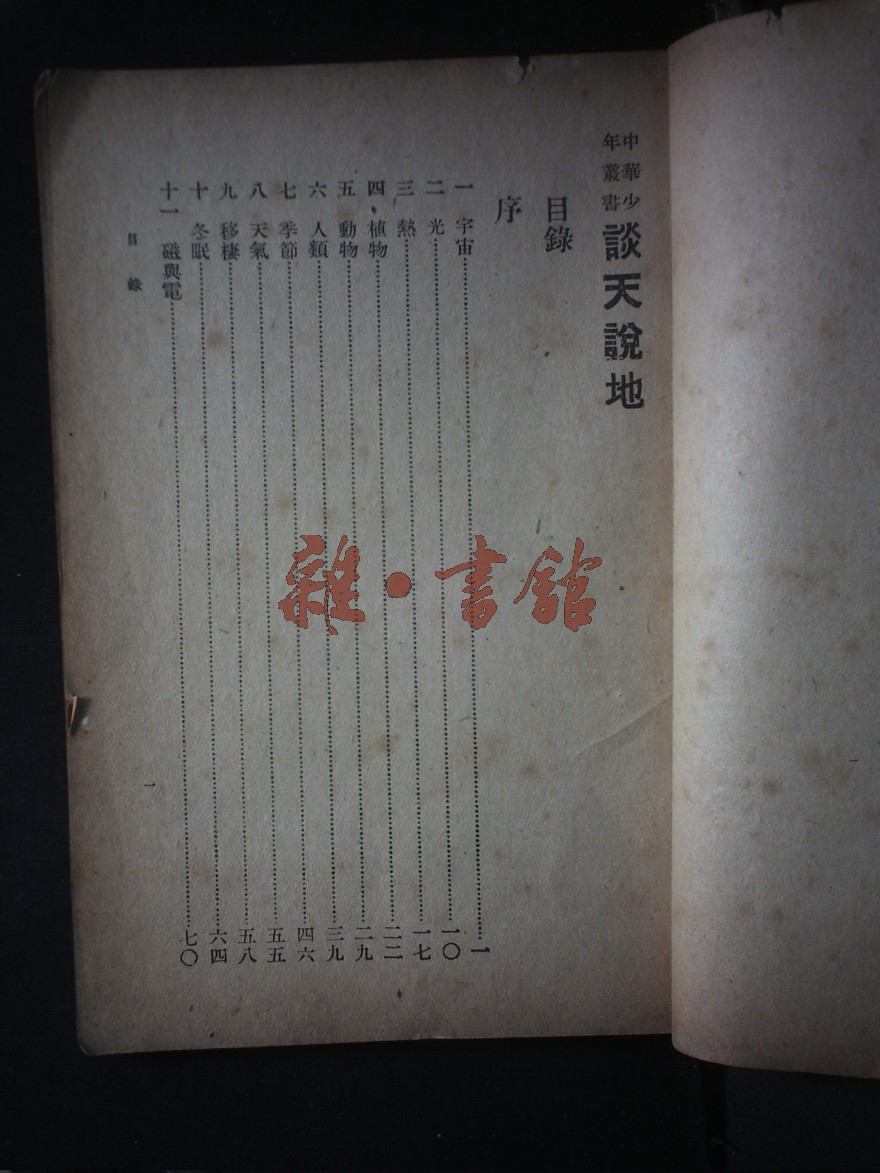 中華少年叢書
談天說地
目錄
序
一 宇宙 一
二 光 一〇
三 熱 一七
四 植物 二二
五 動物 二九
六 人類 三九
七 季節 四六
八 天氣 五五
九 移棲 五八
十 冬眠 六四
十一 磁與電 七〇
目錄
一
雜·書館